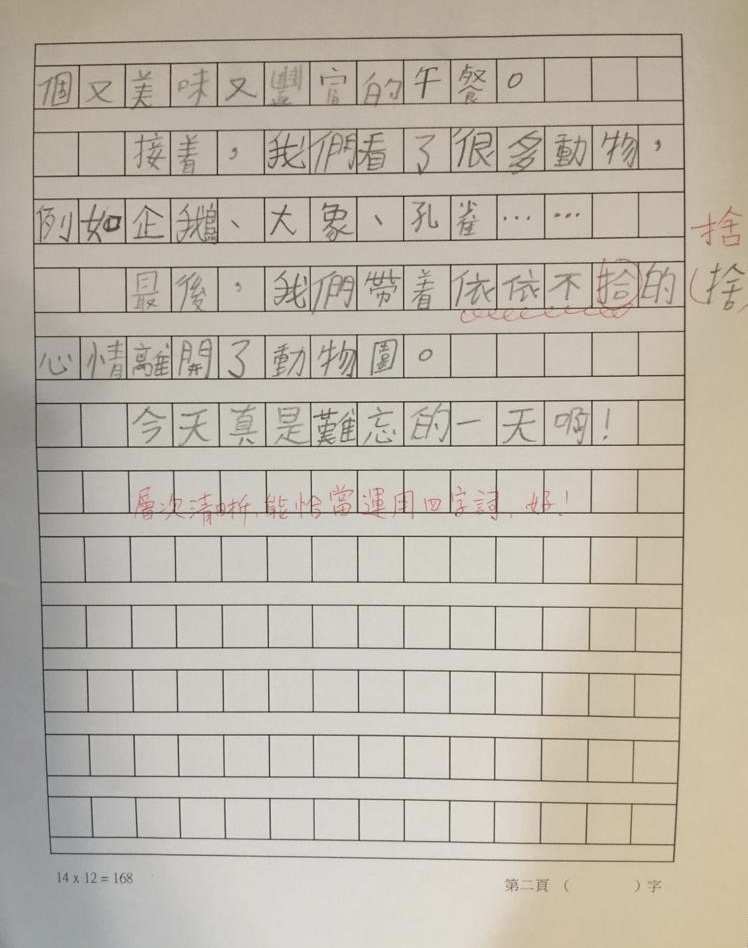 個又美味又豐富的午餐。
接着，我們看了很多動物，
例如企鵝、大象、孔雀……
捨
最後，我們帶着依依不拾的(捨)
心情離開了動物園。
今天真是難忘的一天啊！
層次清晰,能恰當運用四字詞,好!
14 x 12 = 168
第二頁（　　　）字